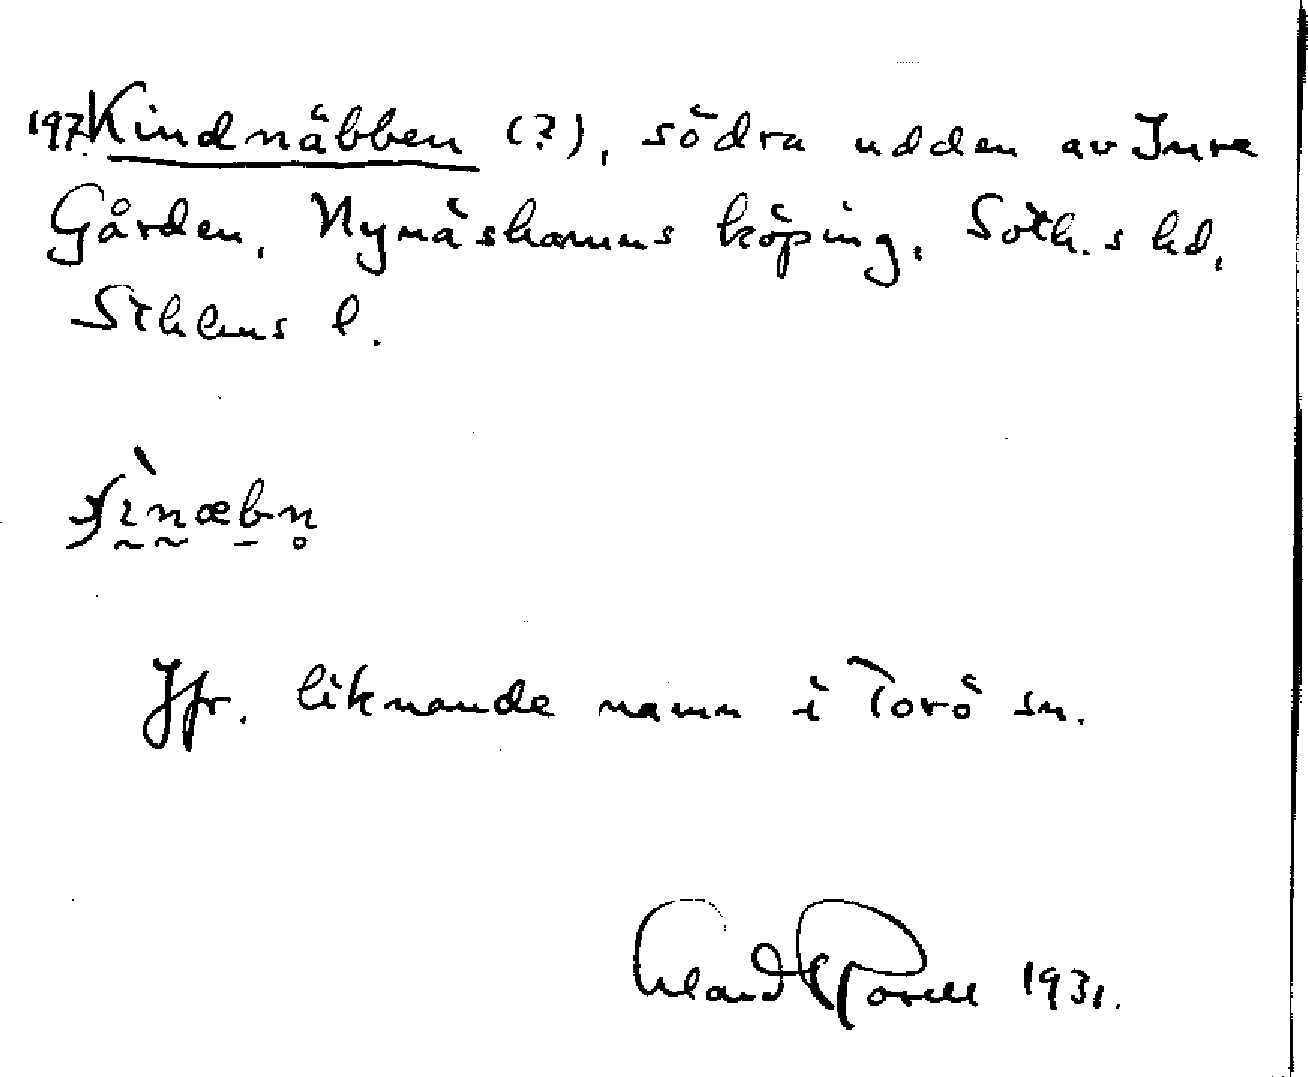 197. Kindnäbben (?), södra udden av Inre
Gården, Nynäshamns köping, Soth.s hd,
Sthlms l.
Jfr. liknande namn i Torö sn.
1931.